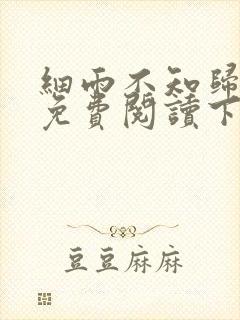 細雨不知歸
免費閱讀下
豆豆麻麻